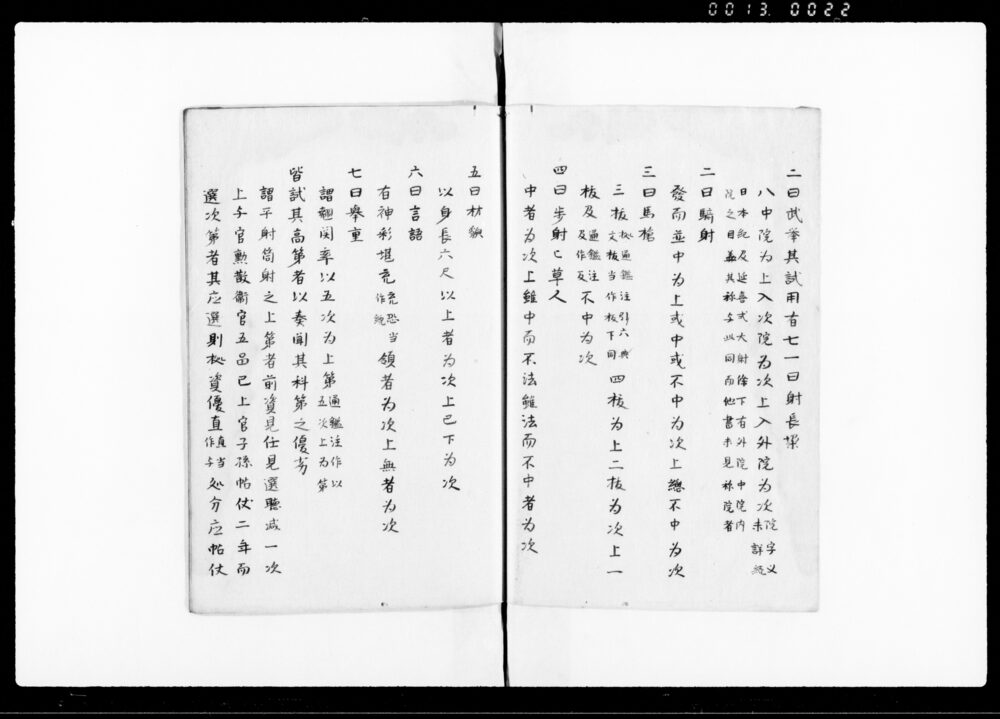 0013. 0022
二曰武挙其試用有七一曰射長垜
入中院為上入次院為次上入外院為次院字义未詳続
日本紀及延喜式大射條下有外院中院内
院之目蓋其称与此同而他書未見称院者
二曰騎射
發而並中為上或中或不中為次上總不中為次
三曰馬槍
三板板通鑑注引六典文板当作板下同四板為上二板為次上一
板及通鑑注及作反不中為次
四曰歩射已草人
中者為次上雖中而不法雖法而不中者為次
五曰材貌
以身長六尺以上者為次上已下為次
六曰言語
有神彩堪充充恐当作統領者為次上無者為次
七曰舉重
謂翹関率以五次為上第通鑑注作以五次上為第
皆試其高第者以奏聞其科第之優劣
謂平射筒射之上第者前資見任見選聴減一次
上与官勲散衞官五品已上官子孫帖仗二年而
選次第者其应選則拠資優直直当作与処分应帖仗